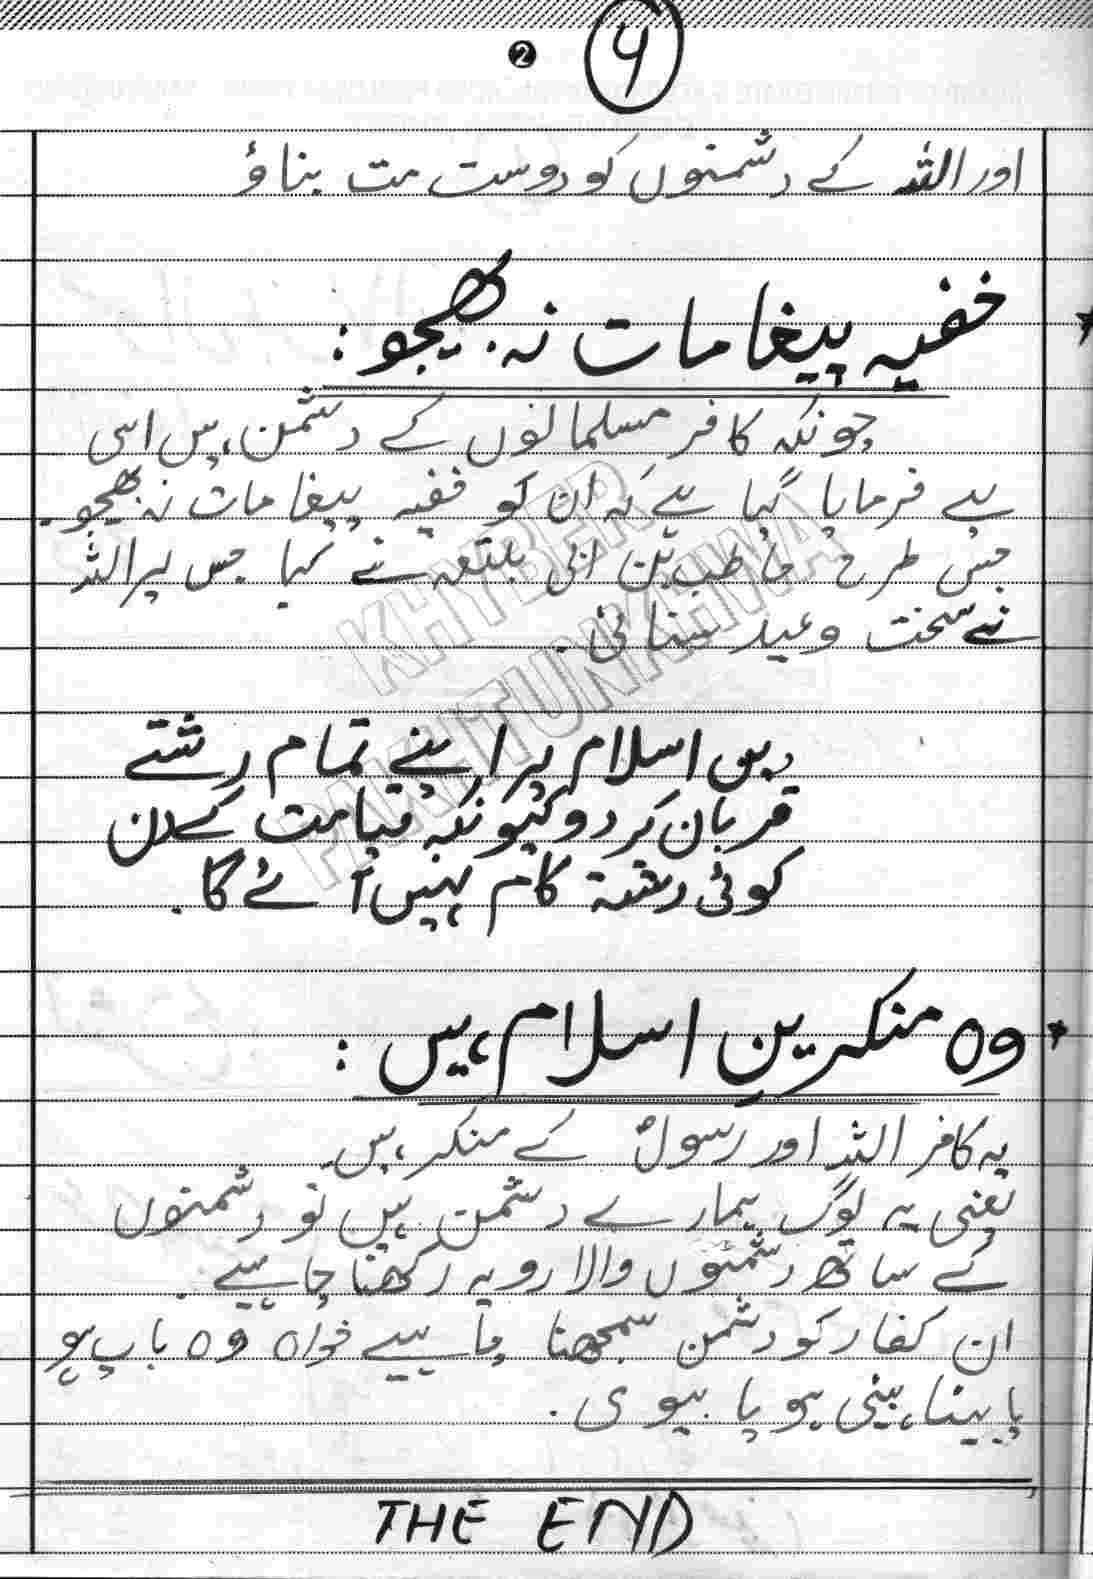 2 4
اور اللہ کے دشمنوں کو دوست مت بناؤ
خفیہ پیغامات نہ بھیجو:
چونکہ کافر مسلمانوں کے دشمن ہیں اسی
لیے فرمایا گیا ہے کہ ان کو خفیہ پیغامات نہ بھیجو۔
جس طرح حاطب بن ابی بلتعہ نے کیا جس پر اللہ
نے سخت وعید سنائی۔
دین اسلام پر اپنے تمام رشتے
قربان کر دو کیونکہ قیامت کے دن
کوئی رشتہ کام نہیں آئے گا۔
* وہ منکرینِ اسلام ہیں:
یہ کافر اللہ اور رسولؐ کے منکر ہیں۔
یعنی یہ لوگ ہمارے دشمن ہیں تو دشمنوں
کے ساتھ دشمنوں والا رویہ رکھنا چاہیے۔
ان کفار کو دشمن سمجھنا چاہیے خواہ وہ باپ ہو
یا بیٹا، بیٹی ہو یا بیوی۔
THE END
KHYBER
PAKHTUNKHWA